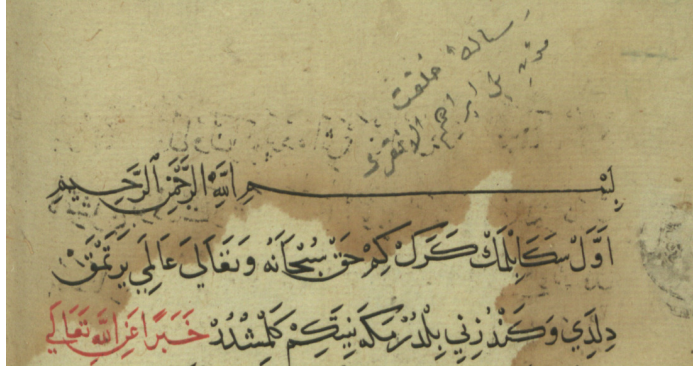 رسالهٔ خلقت
ابراهيم الانقروى
بِسْمِ اللهِ الرَّحْمٰنِ الرَّحِيمِ
اوَّلْ سَكَا بِلْمَكْ كَرَكْ كِمْ حَقْ سُبْحَانَهُ وَتَعَالَى عَالَمِي يَرَتْمَقْ
دِلَدِي وَكَنْدُزِنِي بِلْدُرْمَكَه نِيتَكِمْ كَلْمِشْدُرْ خَبَرًا عَنِ اللهِ تَعَالَى